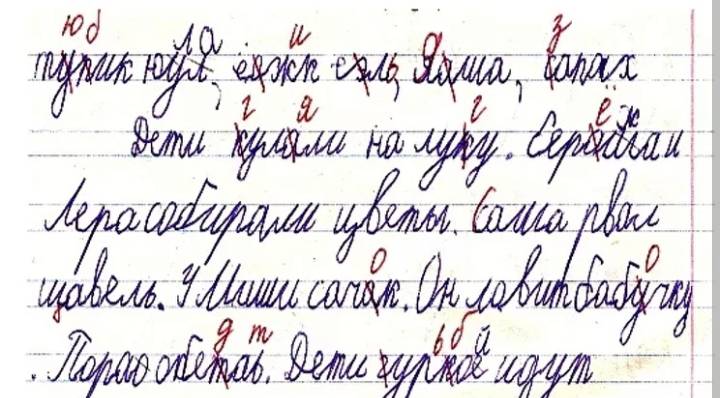 ю б ла и з
тупик юул, ёяжк еэль, Яаша, сапах
г я г ё ж
Дети кулали на луку. Серга и
Лера собирали цветы. Саша рвал
о о
щавель. У Миши сачак. Он ловит бабучку
д т ь б й
. Пора обетаь. Дети гуркое идут